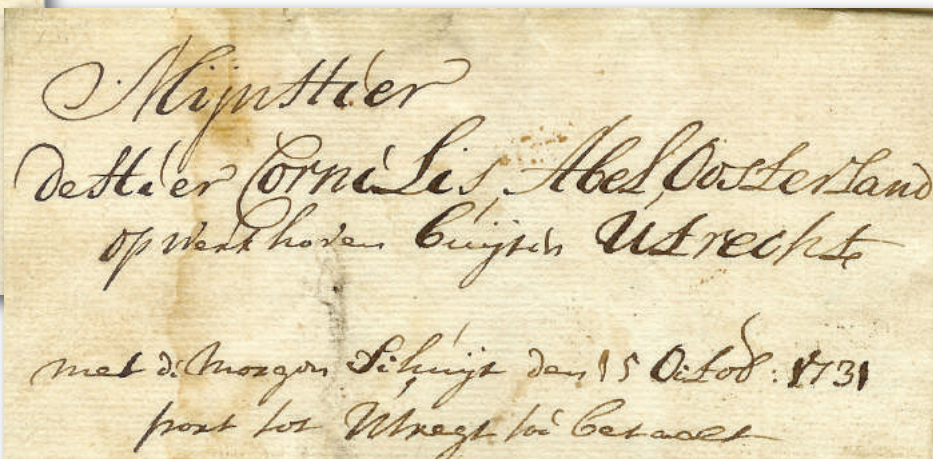 Mijn Heer
de Heer Cornelis Abel Oosterland
op werkhoven buijten Utrecht
met de Morgen Schuijt den 15 Octob: 1731
port tot Utregt toe betaelt